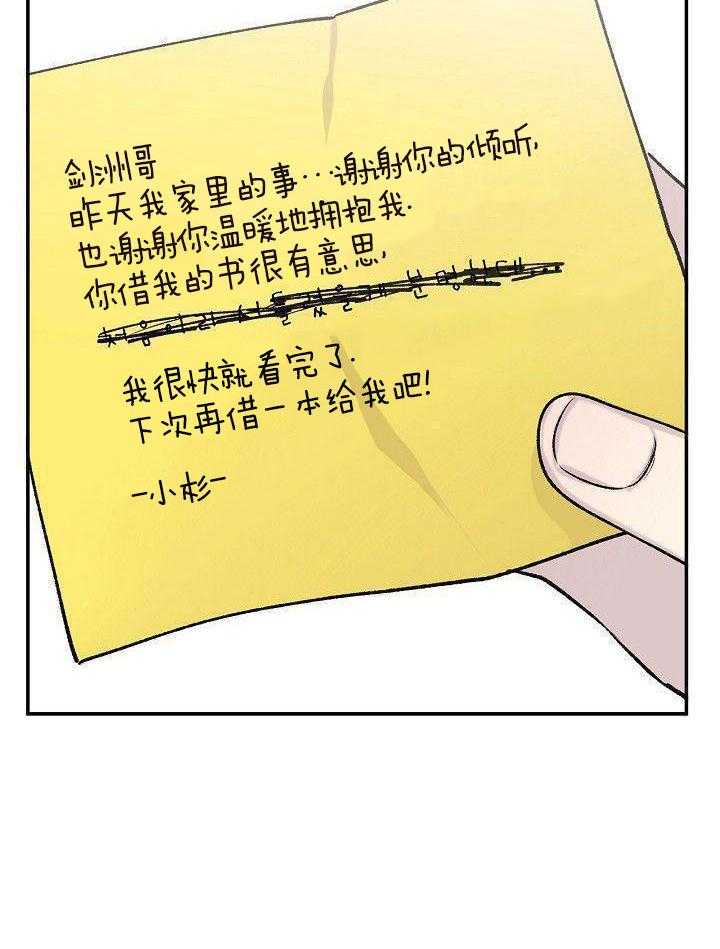 剑洲哥
昨天我家里的事···谢谢你的倾听,
也谢谢你温暖地拥抱我.
你借我的书很有意思,
我很快就看完了.
下次再借一本给我吧!
-小杉-